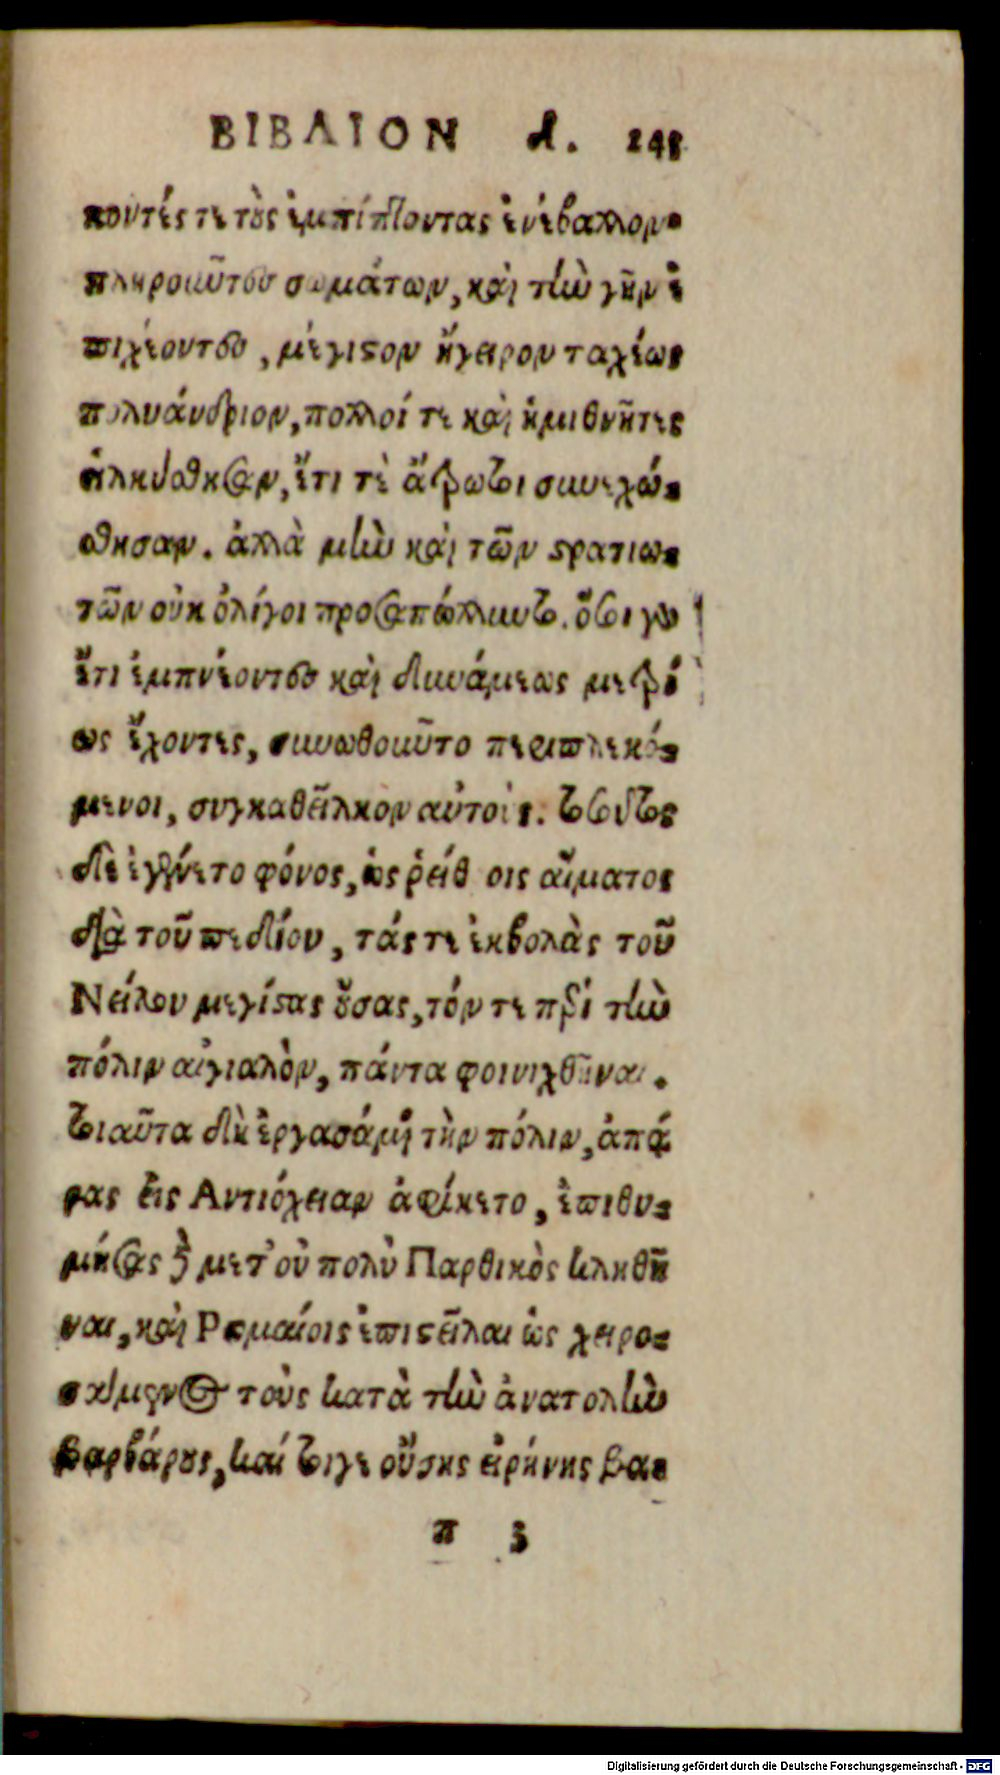 ΒΙΒΛΙΟΝ δ. 245
κοντές τε τοὺς ἐμπίπτοντας ἐνέβαλλον·
πληροῦντος σωμάτων, καὶ τὴν γῆν ἐ
πιχέοντος, μέγιστον ἤγειρον ταχέως
πολυάνδριον, πολλοί τε καὶ ἡμιθνῆτες
εἱλκύσθησαν, ἔτι τὲ ἄτρωτοι συνεχώ-
σθησαν. ἀλλὰ μὴν καὶ τῶν στρατιω-
τῶν οὐκ ὀλίγοι προσαπώλλυντο. ὅσοι γὰρ
ἔτι ἐμπνέοντες καὶ δυνάμεως μετρί
ως ἔχοντες, συνωθοῦντο περιπλεκό-
μενοι, συγκαθεῖλκον αὐτούς. τοσοῦτος
δὲ ἐγένετο φόνος, ὡς ῥείθροις αἵματος
διὰ τοῦ πεδίου, τάς τε ἐκβολὰς τοῦ
Νείλου μεγίστας οὔσας, τόν τε περὶ τὴν
πόλιν αἰγιαλὸν, πάντα φοινιχθῆναι.
τοιαῦτα δὴ ἐργασάμενος τὴν πόλιν, ἀπά
ρας εἰς Αντιόχειαν ἀφίκετο, ἐπιθυ-
μήσας δὲ μετ' οὐ πολὺ Παρθικὸς κληθῆ
ναι, καὶ Ρωμαίοις ἐπιστεῖλαι ὡς χειρο-
σάμενος τοὺς κατὰ τὴν ἀνατολὴν
βαρβάρους, καί τοιγε οὔσης εἰρήνης βα-
π 3
Digitalisierung gefördert durch die Deutsche Forschungsgemeinschaft - DFG